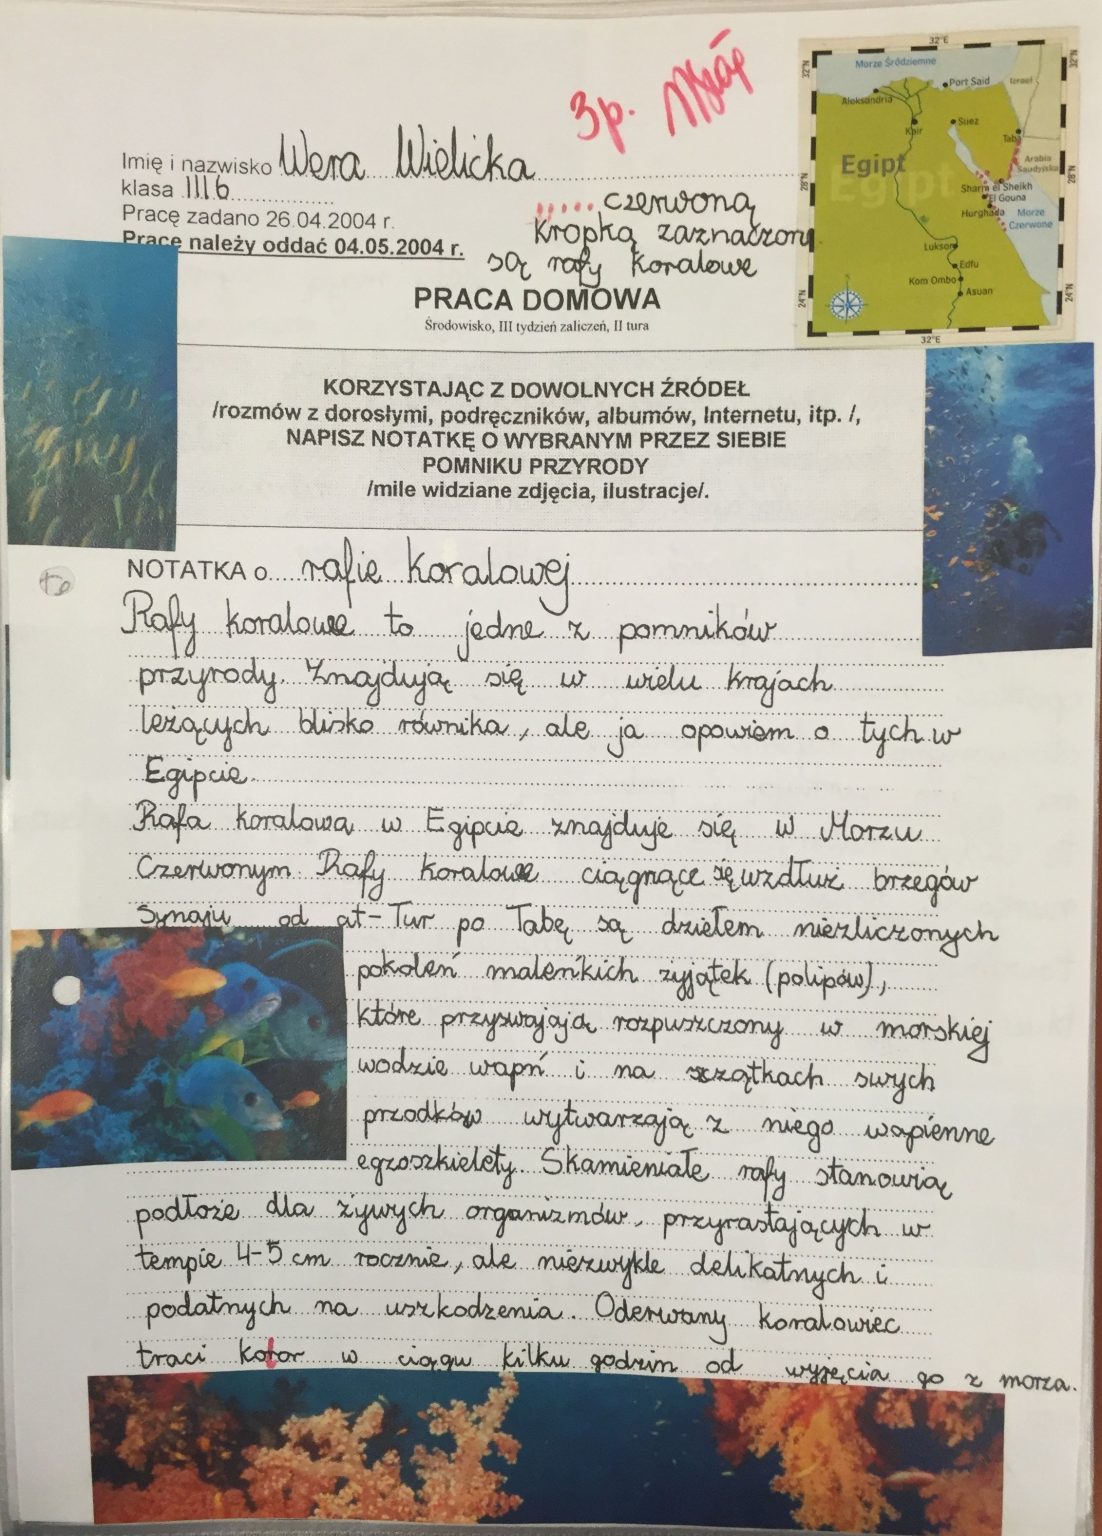 3p.
Imię i nazwisko Wera Wielicka
klasa III b
Pracę zadano 26.04.2004 r.
Pracę należy oddać 04.05.2004 r.
czerwoną
kropką zaznaczone
są rafy koralowe
32°E
32°N
32°N
Morze Śródziemne
Port Said
Izrael
Aleksandria
Kair
Suez
Taba
Egipt
Arabia
Saudyjska
28°N
28°N
Sharm el Sheikh
El Gouna
Hurghada
Morze
Czerwone
Luksor
Edfu
Kom Ombo
Asuan
24°N
24°N
32°E
PRACA DOMOWA
Środowisko, III tydzień zaliczeń, II tura
KORZYSTAJĄC Z DOWOLNYCH ŹRÓDEŁ
/rozmów z dorosłymi, podręczników, albumów, Internetu, itp. /,
NAPISZ NOTATKĘ O WYBRANYM PRZEZ SIEBIE
POMNIKU PRZYRODY
/mile widziane zdjęcia, ilustracje/.
NOTATKA o rafie koralowej
Rafy koralowe to jedne z pomników
przyrody. Znajdują się w wielu krajach
leżących blisko równika, ale ja opowiem o tych w
Egipcie.
Rafa koralowa w Egipcie znajduje się w Morzu
Czerwonym. Rafy koralowe ciągnące się wzdłuż brzegów
Synaju od at-Tur po Tabę są dziełem niezliczonych
pokoleń maleńkich żyjątek (polipów),
które przyswajają rozpuszczony w morskiej
wodzie wapń i na szczątkach swych
przodków wytwarzają z niego wapienne
egzoszkielety. Skamieniałe rafy stanowią
podłoże dla żywych organizmów, przyrastających w
tempie 4-5 cm rocznie, ale niezwykle delikatnych i
podatnych na uszkodzenia. Oderwany koralowiec
traci kolor w ciągu kilku godzin od wyjęcia go z morza.